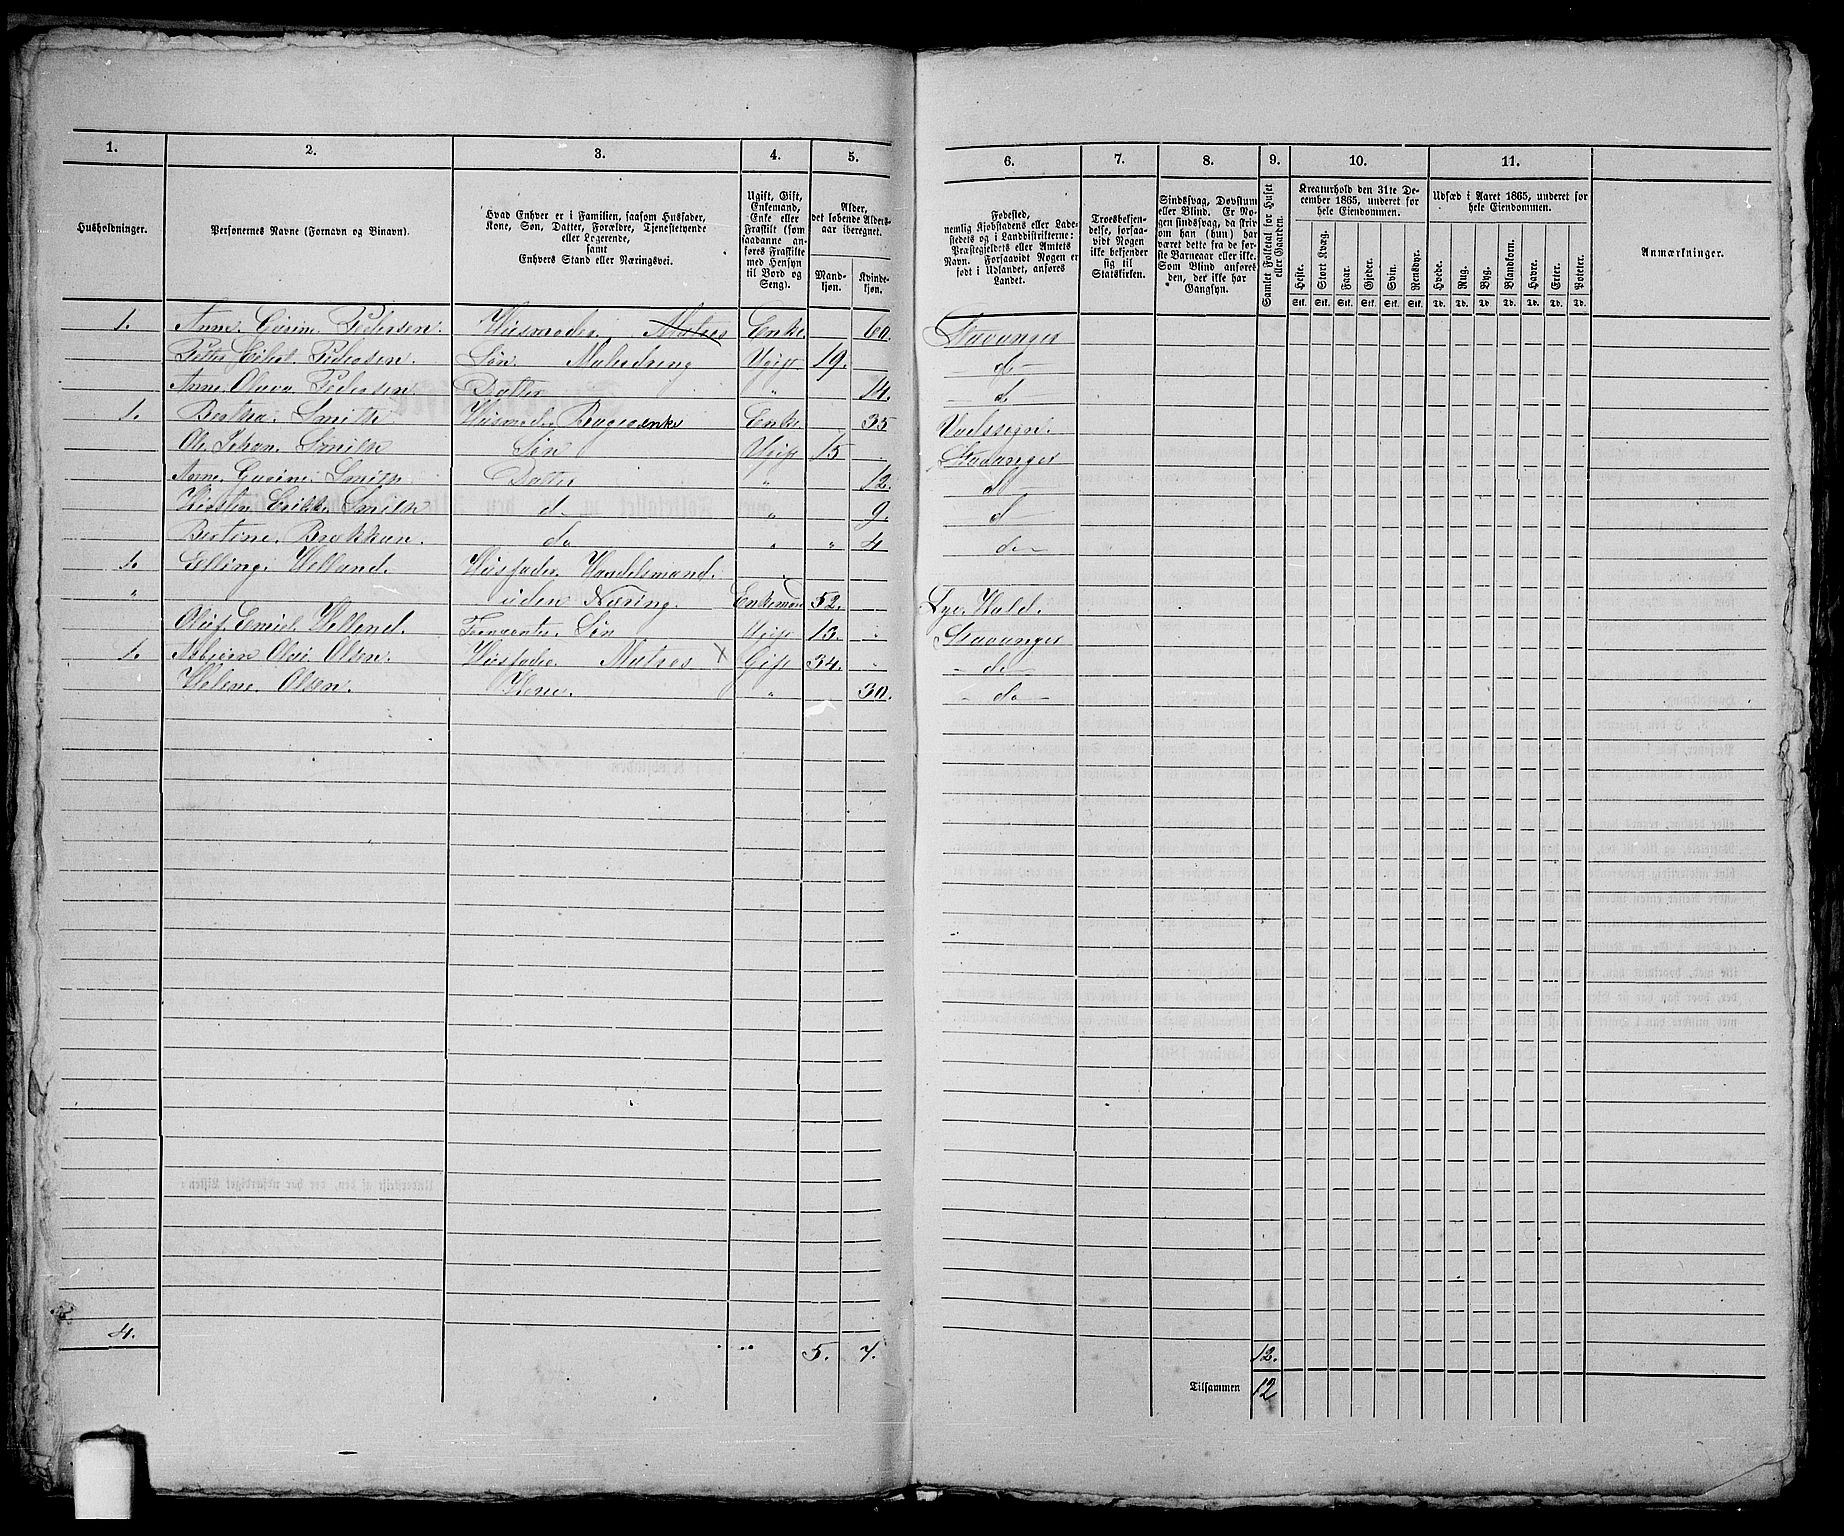 1. 2. 3. 4. 5. 6. 7. 8. 9. 10. 11.
Husholdninger.
Personernes Navne (Fornavn og Binavn).
Hvad Enhver er i Familien, saasom Husfader, Kone, Søn, Datter, Forældre, Tjenestetyende eller Logerende, samt Enhvers Stand eller Næringsvei.
Ugift, Gift, Enkemand, Enke eller Fraskilt (som saadanne anføres Fraskilte med Hensyn til Bord og Seng).
Alder, det løbende Alders-aar iberegnet.
Mand-kjøn.
Kvinde-kjøn.
Fødested, nemlig Kjøbstadens eller Ladestedets og i Landdistrikterne: Præstegjeldets eller Amtets Navn. Forsaavidt Nogen er født i Udlandet, anføres Landet.
Troesbekjendelse, forsaavidt Nogen ikke bekjender sig til Statskirken.
Sindssvag, Døvstum eller Blind. Er Nogen sindssvag, da skrives om han (hun) har været dette fra de første Barneaar eller ikke. Som Blind anføres den, der ikke har Gangsyn.
Samlet Folketal for Huset eller Gaarden.
Kreaturhold den 31te December 1865, underet for hele Eiendommen.
Heste. Stort Kvæg. Faar. Gjeder. Svin. Rensdyr.
Udsæd i Aaret 1865, underet for hele Eiendommen.
Hvede. Rug. Byg. Blandkorn. Havre. Erter. Poteter.
Anmærkninger.
Stk. Stk. Stk. Stk. Stk. Stk. Td. Td. Td. Td. Td. Td. Td.
1. Anne Gurine Pedersen Husmoder, Matros Enke. 60. Stavanger
Peder Eilert Pedersen Søn Malerdreng Ugift 19. do
Anne Olava Pedersen Datter " 14. d
1. Bertha Smith Husmoder Enke. 35
Ole Johan Smith Søn Ugift 15 Stavanger
Anne Gurine Smith Datter " 12. d
Kirsten Smith d " 9. d
Bertine Brakhan. do " " 4 do
1. Elling Helland. Husfader. Handelsmand.
" uden Næring. Enkemand 52. Lye. Hald.
Oluf Emiel Helland. Søn Ugift 13. Stavanger
1. Asbjørn Olai Olsen. Husfader Matros X Gift 34. do
Helene Olsen. Kone. " 30. do
4. 5. 7. 12.
Tilsammen 12